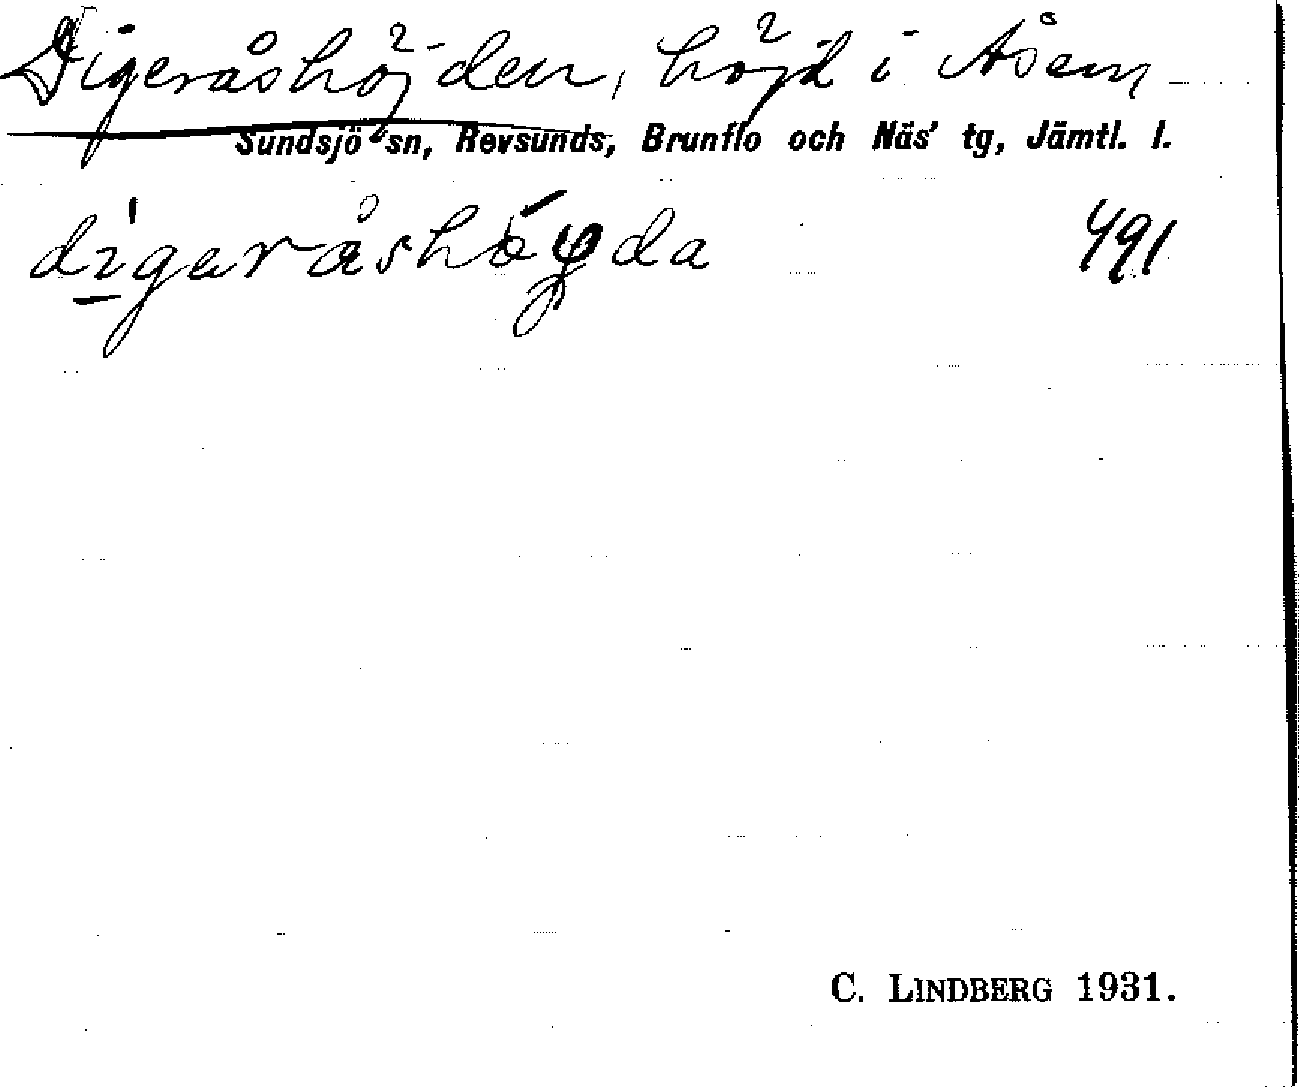 Digeråshöjden, höjd i Åsen
Sundsjö sn, Revsunds, Brunflo och Näs' tg, Jämtl. l.
491
C. LINDBERG 1931.